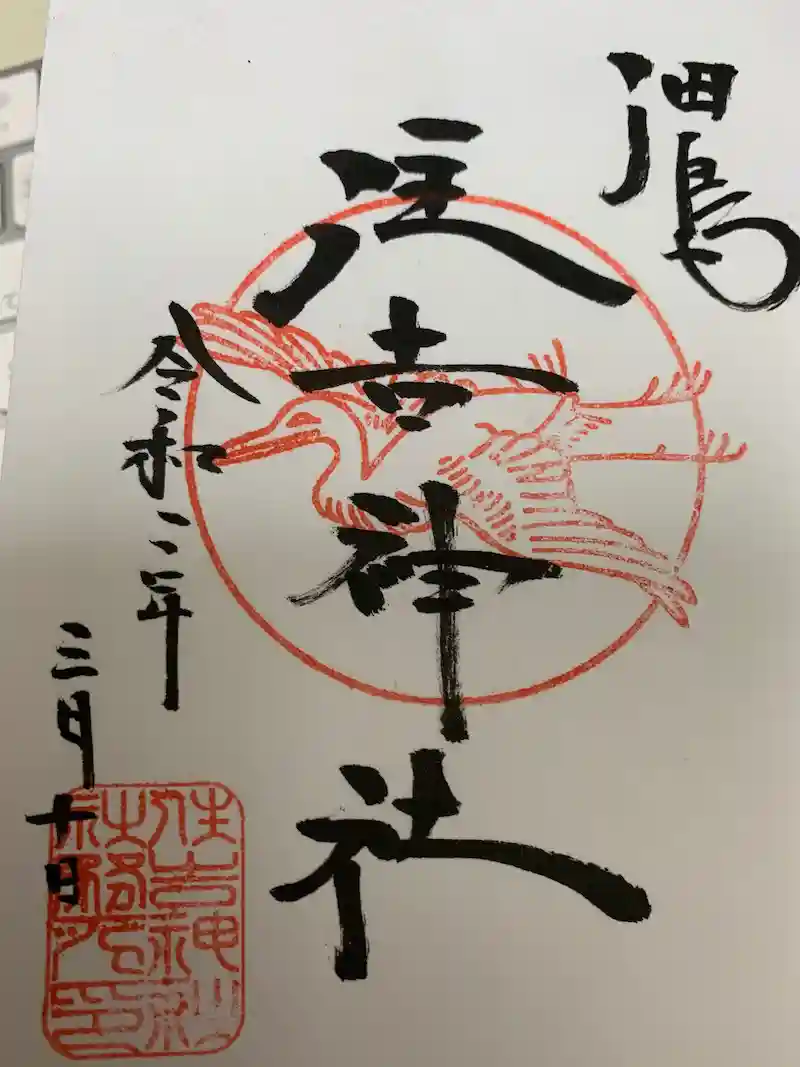 佃島
住吉神社
令和二年
三月十日
住吉神社
社務所印